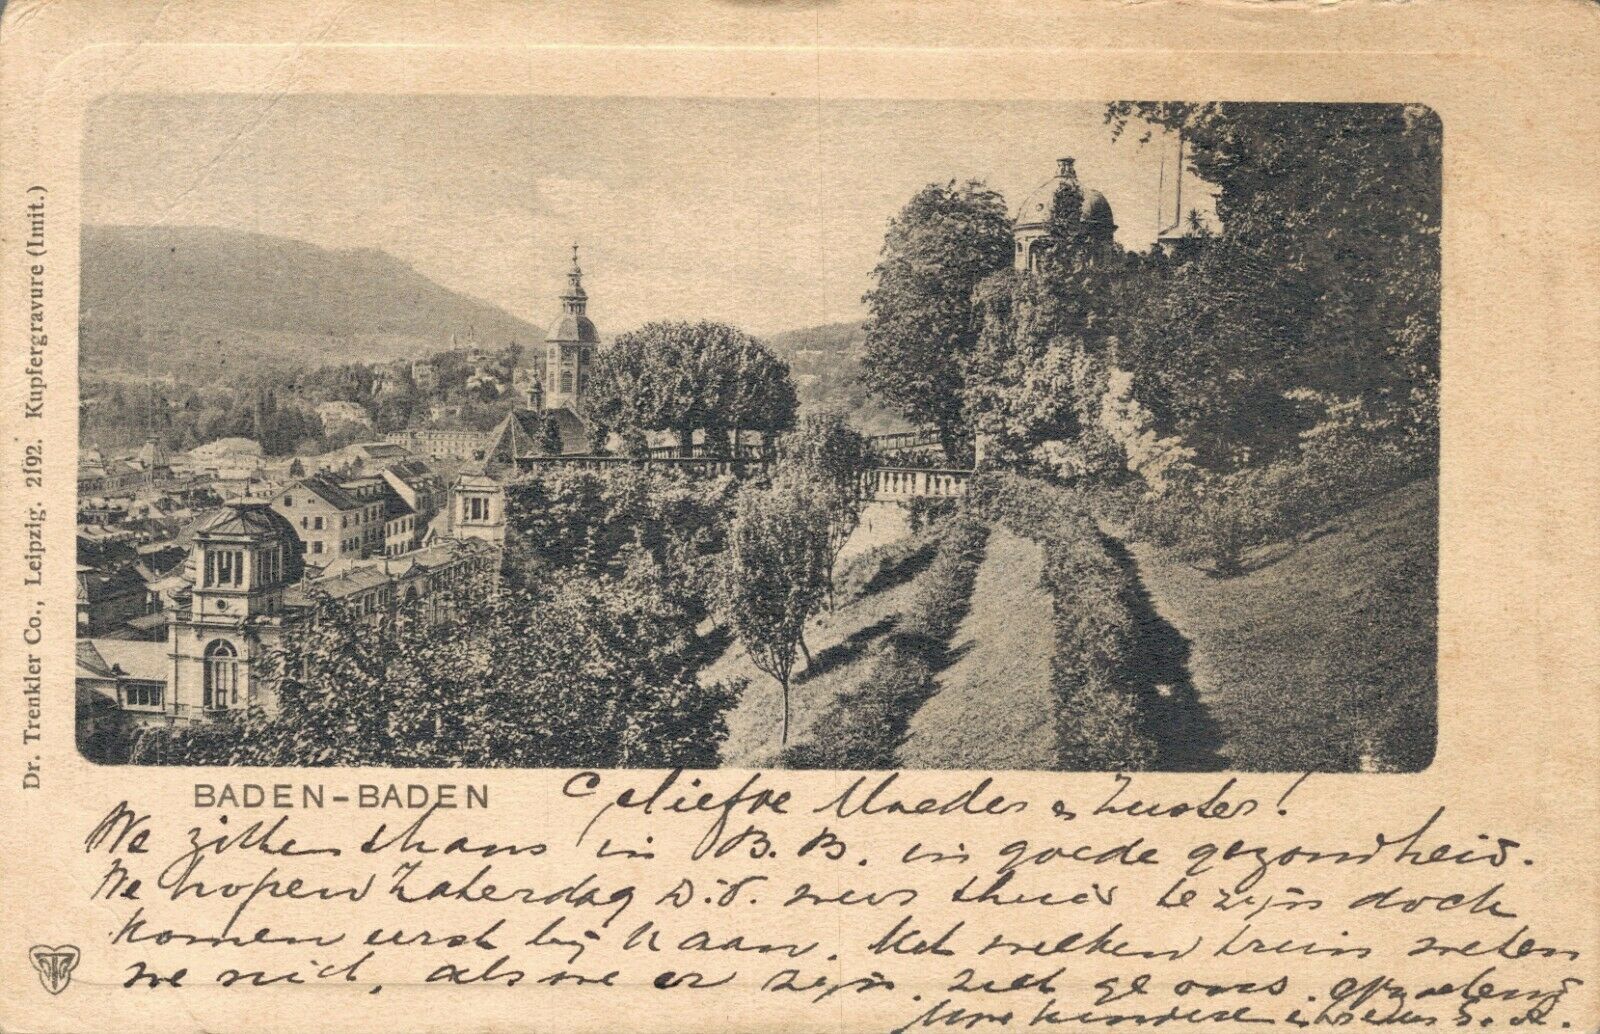 Dr. Trenkler Co., Leipzig. 2192. Kupfergravure (Imit.)
BADEN-BADEN
Geliefde Moeder en Zuster!
We zitten thans in B. B. in goede gezondheid.
We hopen Zaterdag D.V. weer thuis te zijn doch
komen eerst bij U aan. Met welken trein weten
we niet, als we er zijn, ziet ge ons.
Uwe kinderen